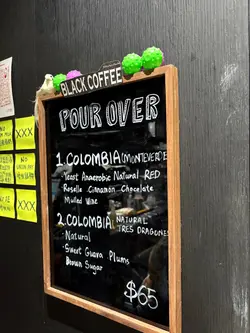 BLACK COFFEE
POUR OVER
1. COLOMBIA (MONTEVERDE)
- Yeast Anaerobic Natural RED
Roselle Cinnamon Chocolate
Mulled Wine
2. COLOMBIA NATURAL
TRES DRAGONES
- Natural
- Sweet Guava Plums
Brown Sugar
$65
XXX
XXX